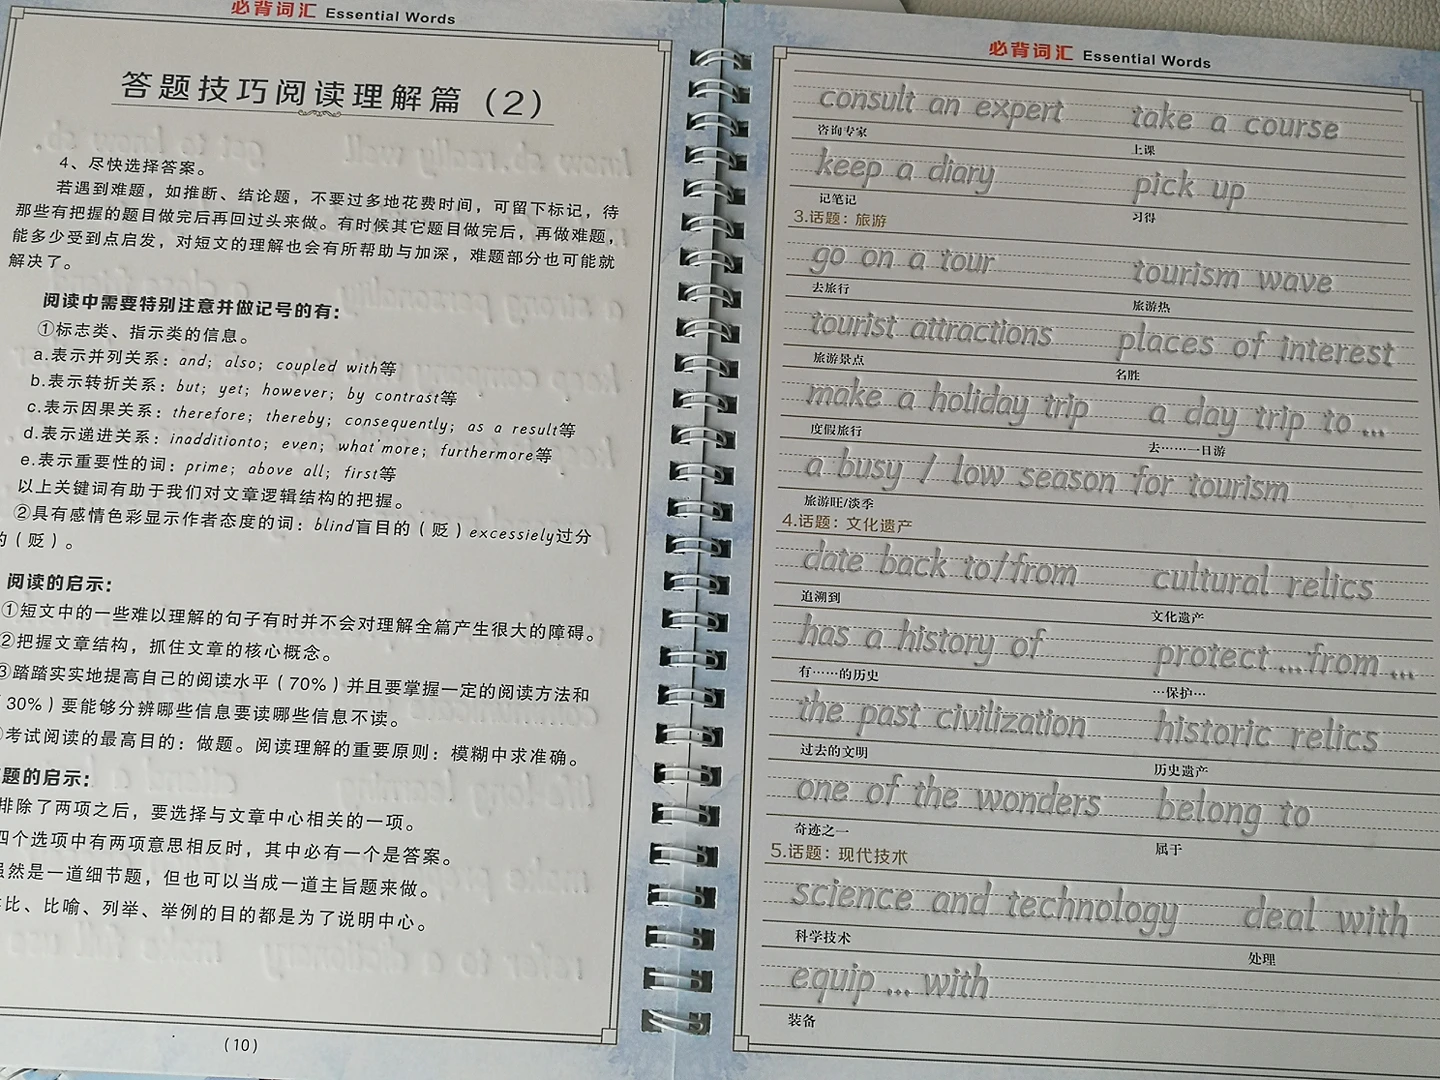 必背词汇 Essential Words
答题技巧阅读理解篇（2）
4、尽快选择答案。
若遇到难题，如推断、结论题，不要过多地花费时间，可留下标记，待
那些有把握的题目做完后再回过头来做。有时候其它题目做完后，再做难题，
能多少受到点启发，对短文的理解也会有所帮助与加深，难题部分也可能就
解决了。
阅读中需要特别注意并做记号的有：
①标志类、指示类的信息。
a.表示并列关系：and；also；coupled with等
b.表示转折关系：but；yet；however；by contrast等
c.表示因果关系：therefore；thereby；consequently；as a result等
d.表示递进关系：inadditionto；even；what'more；furthermore等
e.表示重要性的词：prime；above all；first等
以上关键词有助于我们对文章逻辑结构的把握。
②具有感情色彩显示作者态度的词：blind盲目的（贬）excessiely过分
的（贬）。
阅读的启示：
①短文中的一些难以理解的句子有时并不会对理解全篇产生很大的障碍。
②把握文章结构，抓住文章的核心概念。
③踏踏实实地提高自己的阅读水平（70%）并且要掌握一定的阅读方法和
（30%）要能够分辨哪些信息要读哪些信息不读。
考试阅读的最高目的：做题。阅读理解的重要原则：模糊中求准确。
题的启示：
排除了两项之后，要选择与文章中心相关的一项。
四个选项中有两项意思相反时，其中必有一个是答案。
虽然是一道细节题，但也可以当成一道主旨题来做。
比、比喻、列举、举例的目的都是为了说明中心。
（10）
必背词汇 Essential Words
consult an expert take a course
咨询专家 上课
keep a diary pick up
记笔记 习得
3.话题：旅游
go on a tour tourism wave
去旅行 旅游热
tourist attractions places of interest
旅游景点 名胜
make a holiday trip a day trip to ...
度假旅行 去……一日游
a busy / low season for tourism
旅游旺/淡季
4.话题：文化遗产
date back to/from cultural relics
追溯到 文化遗产
has a history of protect ...from ...
有……的历史 …保护…
the past civilization historic relics
过去的文明 历史遗产
one of the wonders belong to
奇迹之一 属于
5.话题：现代技术
science and technology deal with
科学技术 处理
equip ... with
装备